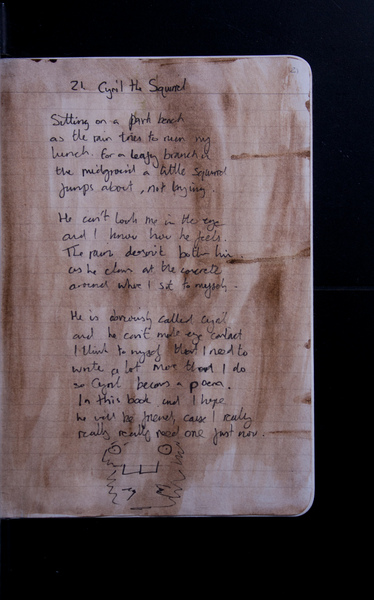 21. Cyril the Squirrel
Sitting on a park bench
as the rain tries to ruin my
lunch. For a leafy branch in
the midground a little squirrel
jumps about, not buying.
He can't look me in the eye
and I know how he feels.
The rain doesn't both him
as he claws at the concrete
around where I sit to myself.
He is obviously called Cyril
and he can't make eye contact
I think to myself that I need to
write a lot more than I do
so Cyril becomes a poem.
In this book and I hope
he will be friends cause I really
really really need one just now.